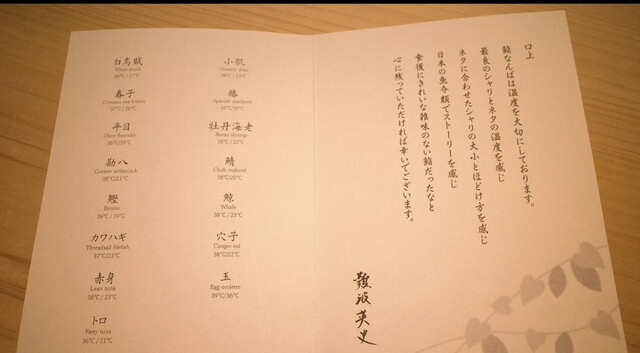 口上
鮨なんばは温度を大切にしております。
最良のシャリとネタの温度を感じ
ネタに合わせたシャリの大小とほどけ方を感じ
日本の魚介類でストーリーを感じ
食後にきれいな雑味のない鮨だったなと
心に残っていただければ幸いでございます。
難波英史
小肌
Gizzard shad
36℃ / 13℃
鰆
Spanish mackerel
牡丹海老
Botan shrimp
38℃ / 22℃
鯖
Chub mackerel
38℃/20℃
鯨
Whale
38℃ / 23℃
穴子
Conger eel
38℃/22℃
玉
Egg omlette
39℃/36℃
白烏賊
White squid
春子
Crimson sea bream
平目
Olive flounder
36℃/19℃
勘八
Greater amberjack
38℃/21℃
鰹
Bonito
36℃ / 19℃
カワハギ
Threadsail filefish
37℃/23℃
赤身
Lean tuna
38℃ / 23℃
トロ
Fatty tuna
36℃ / 21℃